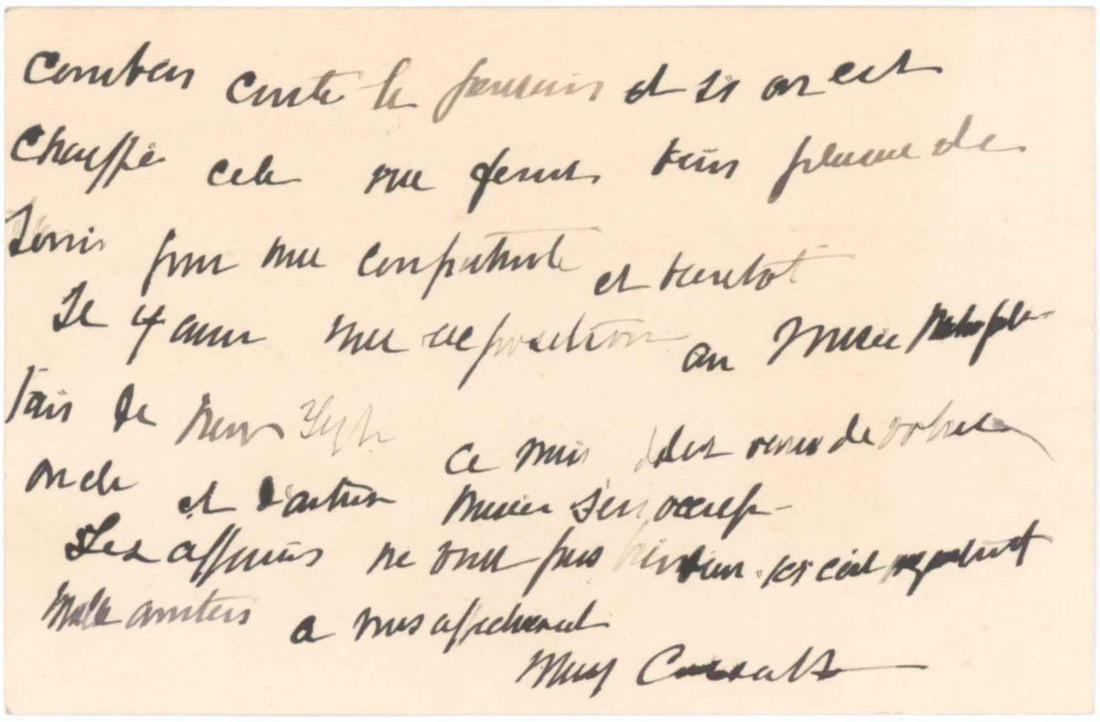 Combien coute la pension et si on est
chauffé cela me ferait bien plaisir de
savoir pour une compatriote et bientot
Il y aura une exposition au Musée Metropoli
tain de New York ce mois des de votre
oncle et d'autres Musées s'en occupe
Les affaires ne vont pas bien ici
Mille amitiés a vous affectueuse
Mary Cassatt